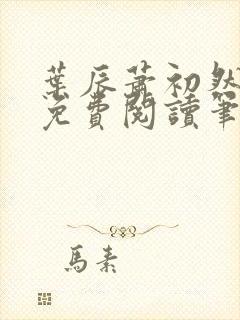 葉辰蕭初然
免費閱讀筆
馬素